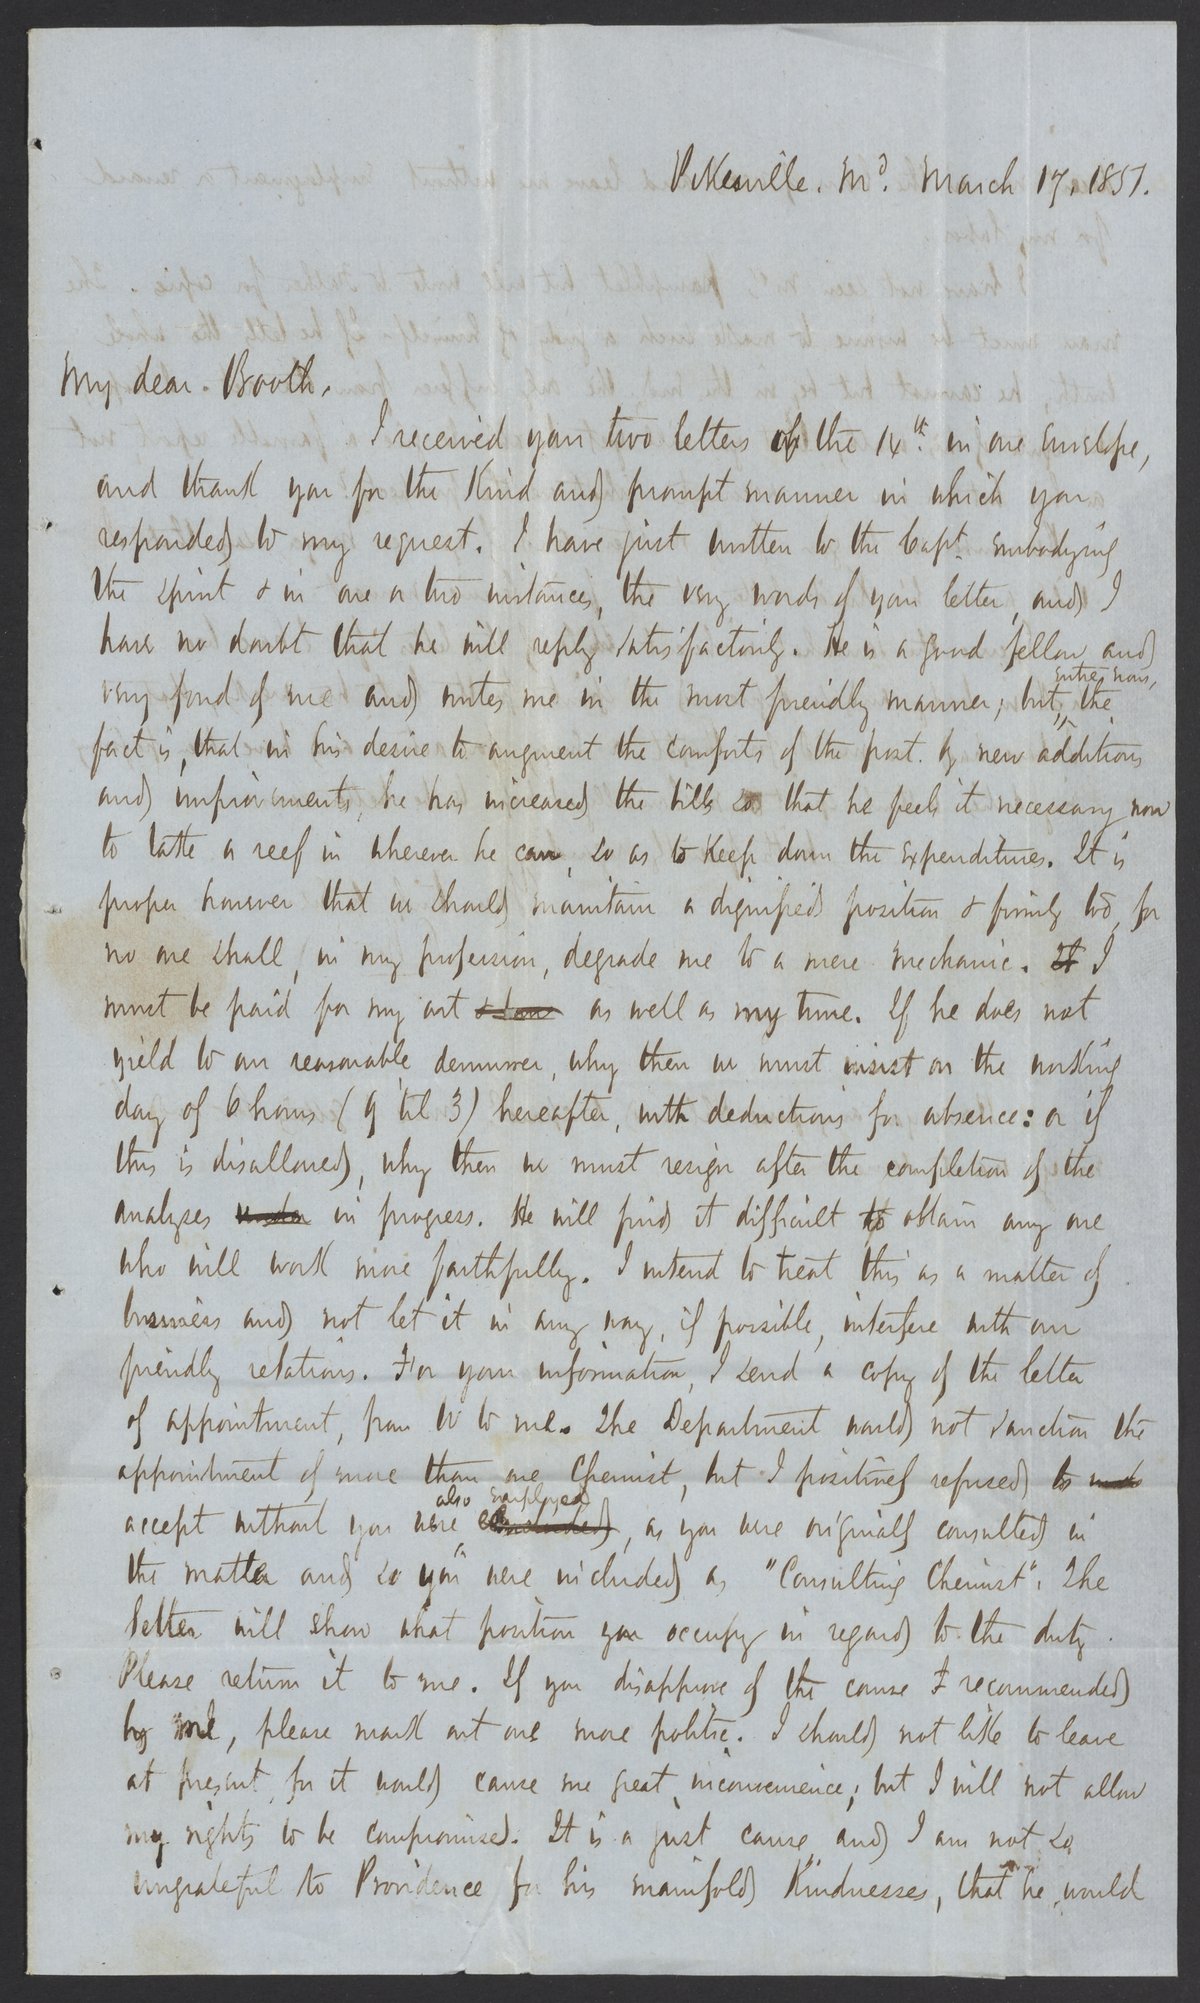 Pikesville. Md. March 17, 1851.
My dear Booth,
I received your two letters of the 14th in one envelope,
and thank you for the kind and prompt manner in which you
responded to my request. I have just written to the Capt. embodying
the spirit & in one or two instances, the very words of your letter, and I
have no doubt that he will reply satisfactorily. He is a good fellow and
very fond of me and writes me in the most friendly manner; but, entre nous, the
fact is, that in his desire to augment the comforts of the post by new additions
and improvements, he has increased the bills so that he feels it necessary now
to take a reef in wherever he can, so as to keep down the expenditures. It is
proper however that we should maintain a dignified position & firmly too, for
no one shall, in my profession, degrade me to a mere mechanic. If I
must be paid for my art as well as my time. If he does not
yield to our reasonable demurrer, why then we must insist on the working
day of 6 hours (9 'til 3) hereafter, with deductions for absence: or if
this is disallowed, why then we must resign after the completion of the
analyses under in progress. He will find it difficult to obtain any one
who will work more faithfully. I intend to treat this as a matter of
business and not let it in any way, if possible, interfere with our
friendly relations. For your information, I send a copy of the letter
of appointment, from W to me. The Department would not sanction the
appointment of more than one Chemist, but I positively refused to
accept without you were also employed, as you were originally consulted in
the matter and so you were included as "Consulting Chemist". The
letter will show what position you occupy in regard to the duty.
Please return it to me. If you disapprove of the course I recommended
by me, please mark out one more politic. I should not like to leave
at present, for it would cause me great inconvenience; but I will not allow
my rights to be compromised. It is a just cause and I am not so
ungrateful to Providence for his manifold kindnesses, that he would